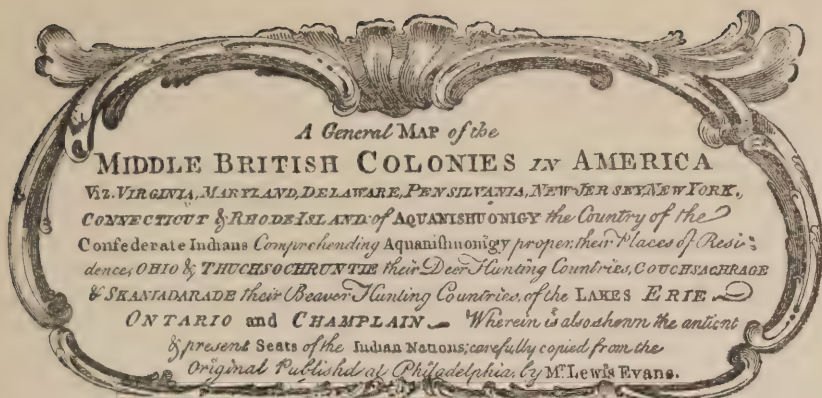 A General MAP of the
MIDDLE BRITISH COLONIES IN AMERICA
Viz. VIRGINIA, MARYLAND, DELAWARE, PENSILVANIA, NEW-JERSEY, NEW YORK,
CONNECTICUT & RHODE ISLAND: of AQUANISHUONIGY the Country of the
Confederate Indians Comprehending Aquanishuonigy proper, their Places of Resi:
dence, OHIO & THUCHSOCHRUNTIE their Deer Hunting Countries, COUCHSACHRAGE
& SKANIADARADE their Beaver Hunting Countries, of the LAKES ERIE
ONTARIO and CHAMPLAIN Wherein is also shewn the antient
& present Seats of the Indian Nations; carefully copied from the
Original Publish'd at Philadelphia, by Mr. Lewis Evans.